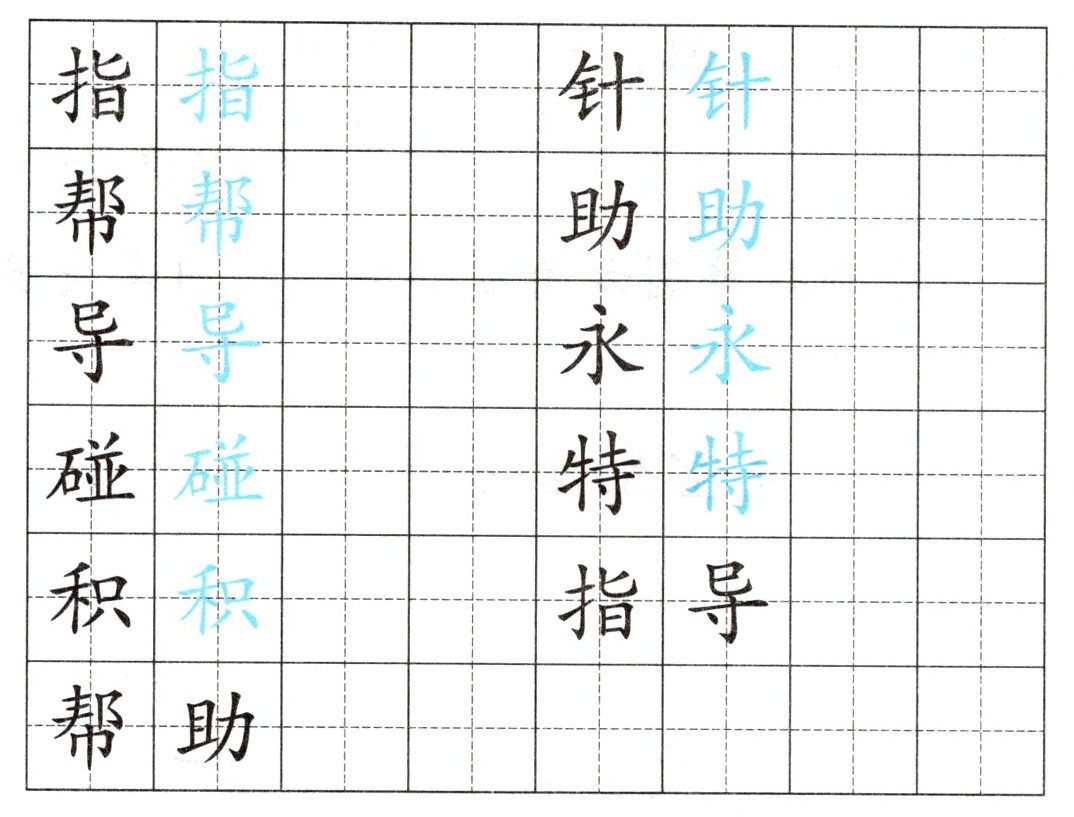 指 指 针 针
帮 帮 助 助
导 导 永 永
碰 碰 特 特
积 积 指 导
帮 助